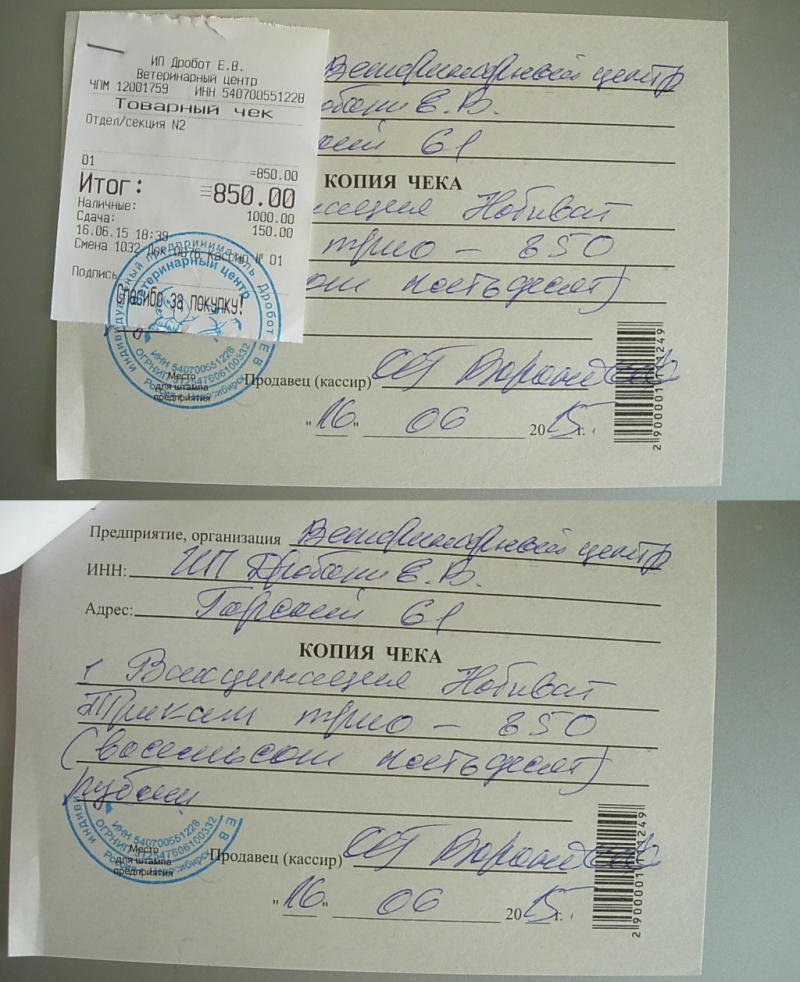 ИП Дробот Е.В.
Ветеринарный центр
ЧПМ 12001759 ИНН 540700551228
Товарный чек
Отдел/секция N2
01
=850.00
Итог: =850.00
Наличные: 1000.00
Сдача: 150.00
16.06.15 18:39
Смена 1032 Док 0076 Кассир № 01
Подпись
Спасибо за покупку!
Ветеринарный центр
Е.В.
61
КОПИЯ ЧЕКА
Нобиват
трио - 850
пятьдесят)
индивидуальный предприниматель Дробот Е В
ветеринарный центр
ИНН 540700551228
Россия Новосибирск
Место
для штампа
предприятия
Продавец (кассир)
"16" 06 2015г.
Предприятие, организация Ветеринарный центр
ИНН: ИП Дробот Е.В.
Адрес: Горский 61
КОПИЯ ЧЕКА
1 Вакцинация Нобиват
Трикет трио - 850
(восемьсот пятьдесят)
рублей
ИНН 540700551228
Место
для штампа
предприятия
Продавец (кассир)
"16" 06 2015г.